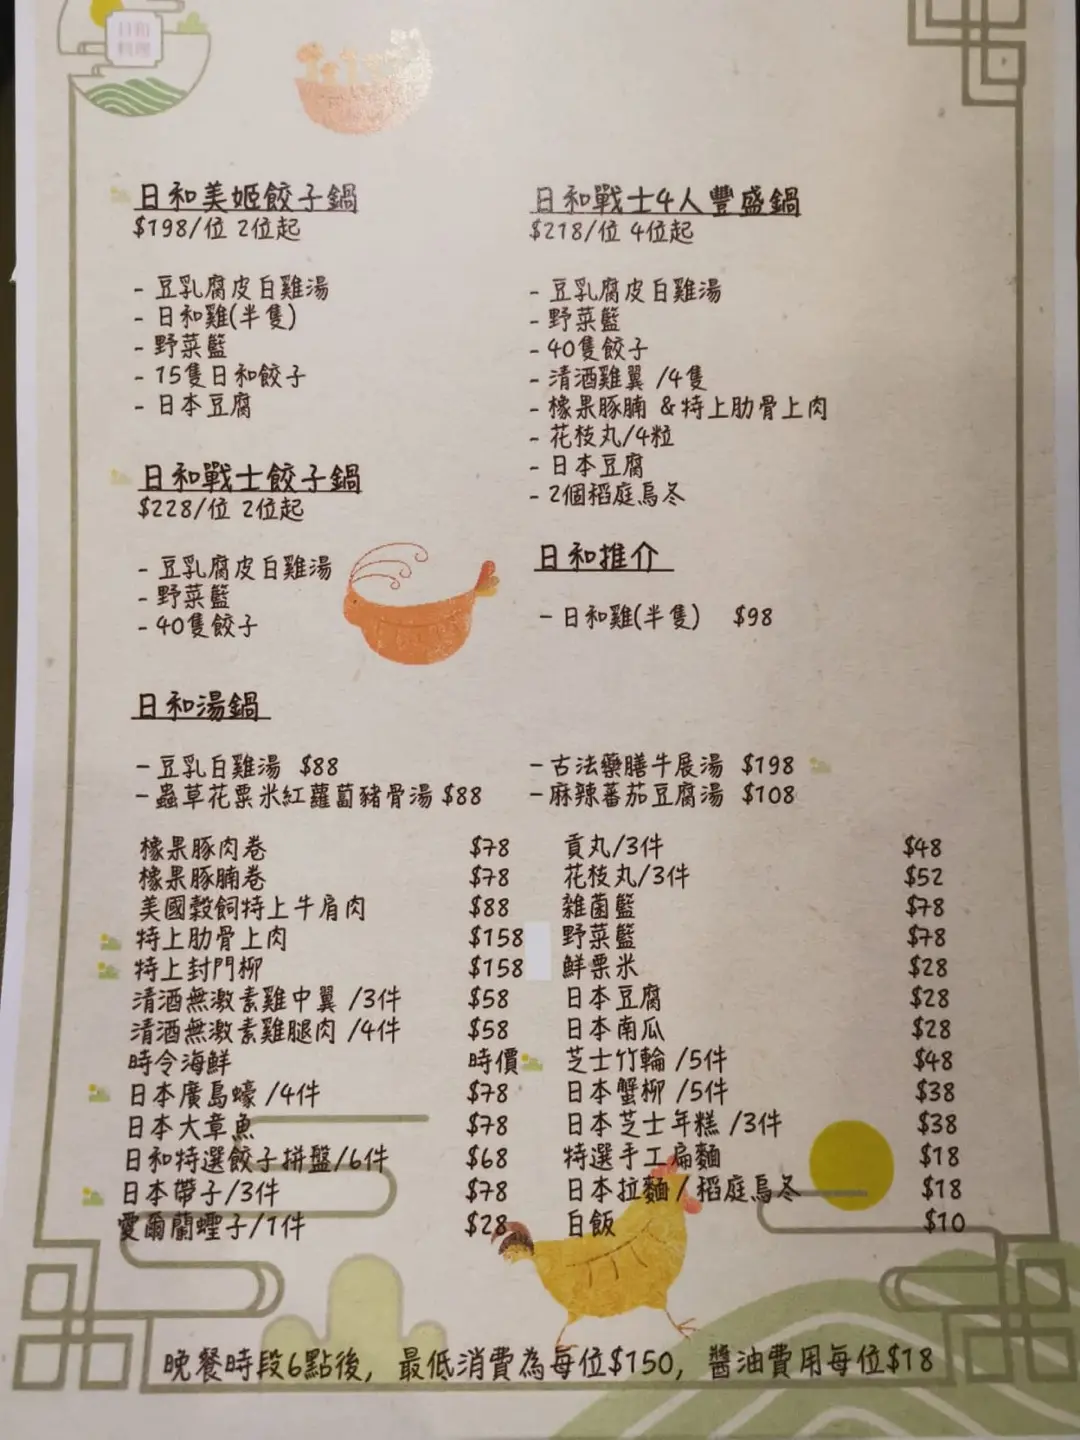 日和
料理
日和美姬餃子鍋
$198/位 2位起
- 豆乳腐皮白雞湯
- 日和雞(半隻)
- 野菜籃
- 15隻日和餃子
- 日本豆腐
日和戰士餃子鍋
$228/位 2位起
- 豆乳腐皮白雞湯
- 野菜籃
- 40隻餃子
日和戰士4人豐盛鍋
$218/位 4位起
- 豆乳腐皮白雞湯
- 野菜籃
- 40隻餃子
- 清酒雞翼 /4隻
- 橡果豚腩 &特上肋骨上肉
- 花枝丸/4粒
- 日本豆腐
- 2個稻庭烏冬
日和推介
- 日和雞(半隻) $98
日和湯鍋
- 豆乳白雞湯 $88
- 蟲草花粟米紅蘿蔔豬骨湯 $88
- 古法藥膳牛展湯 $198
- 麻辣蕃茄豆腐湯 $108
橡果豚肉卷 $78
橡果豚腩卷 $78
美國穀飼特上牛肩肉 $88
特上肋骨上肉 $158
特上封門柳 $158
清酒無激素雞中翼 /3件 $58
清酒無激素雞腿肉 /4件 $58
時令海鮮 時價
日本廣島蠔 /4件 $78
日本大章魚 $78
日和特選餃子拼盤/6件 $68
日本帶子/3件 $78
愛爾蘭蟶子/1件 $28
貢丸/3件 $48
花枝丸/3件 $52
雜菌籃 $78
野菜籃 $78
鮮粟米 $28
日本豆腐 $28
日本南瓜 $28
芝士竹輪 /5件 $48
日本蟹柳 /5件 $38
日本芝士年糕 /3件 $38
特選手工扁麵 $18
日本拉麵 / 稻庭烏冬 $18
白飯 $10
晚餐時段6點後，最低消費為每位$150，醬油費用每位$18